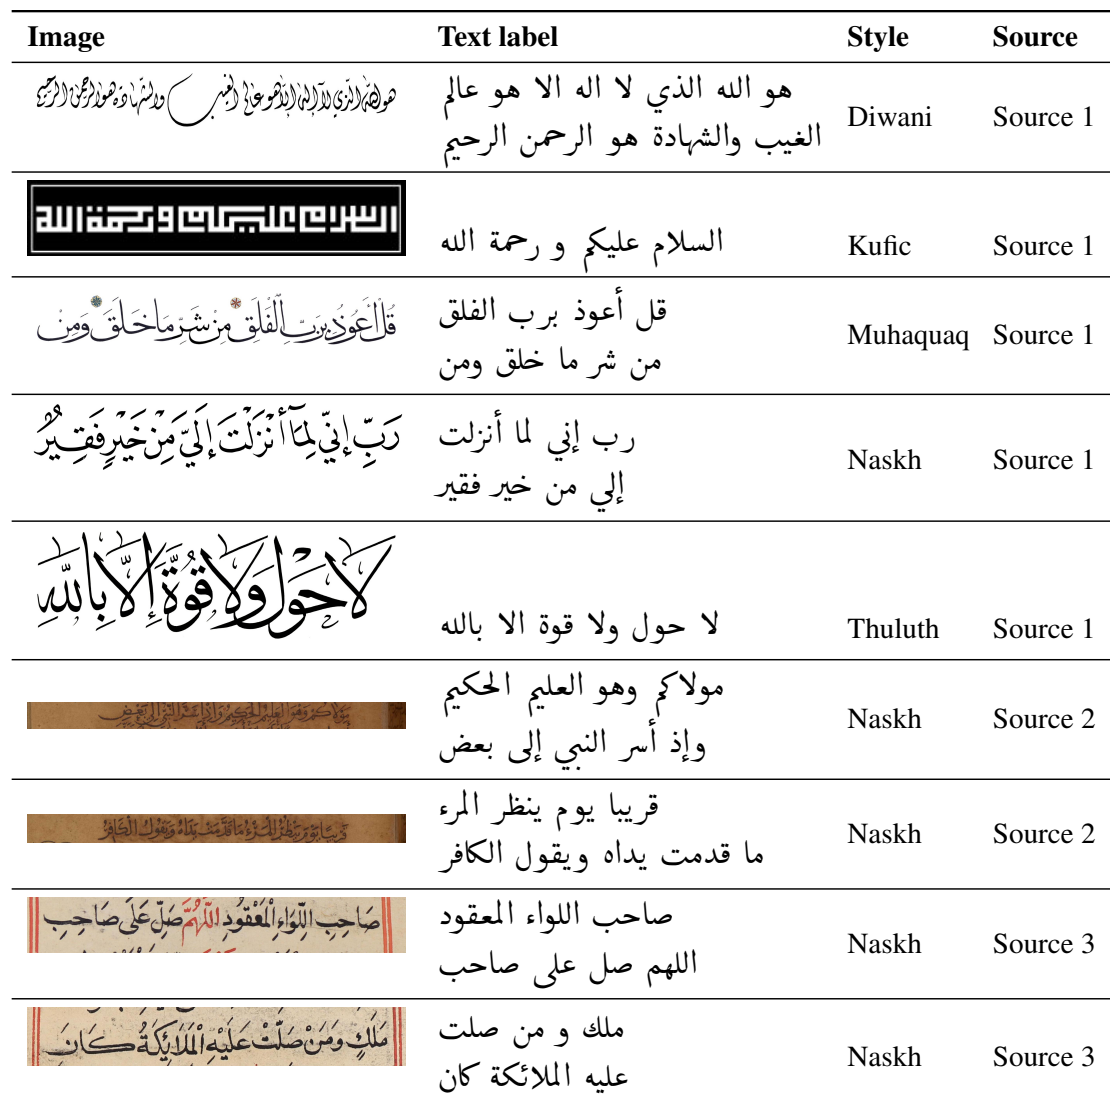 Image Text label Style Source
هو الله الذي لا اله الا هو عالم الغيب والشهادة هو الرحمن الرحيم
هو الله الذي لا اله الا هو عالم
الغيب والشهادة هو الرحمن الرحيم
Diwani Source 1
السلام عليكم و رحمة الله
السلام عليكم و رحمة الله
Kufic Source 1
قُلْ أَعُوذُ بِرَبِّ الْفَلَقِ مِنْ شَرِّ مَا خَلَقَ وَمِنْ
قل أعوذ برب الفلق
من شر ما خلق ومن
Muhaquaq Source 1
رَبِّ إِنِّي لِمَا أَنْزَلْتَ إِلَيَّ مِنْ خَيْرٍ فَقِيرٌ
رب إني لما أنزلت
إلي من خير فقير
Naskh Source 1
لَا حَوْلَ وَلَا قُوَّةَ إِلَّا بِاللَّهِ
لا حول ولا قوة الا بالله
Thuluth Source 1
مولاكم وهو العليم الحكيم وإذ أسر النبي إلى بعض
مولاكم وهو العليم الحكيم
وإذ أسر النبي إلى بعض
Naskh Source 2
قريبا يوم ينظر المرء ما قدمت يداه ويقول الكافر
قريبا يوم ينظر المرء
ما قدمت يداه ويقول الكافر
Naskh Source 2
صَاحِبِ اللِّوَاءِ الْمَعْقُودِ اللّٰهُمَّ صَلِّ عَلَى صَاحِبِ
صاحب اللواء المعقود
اللهم صل على صاحب
Naskh Source 3
مَلَكٍ وَمَنْ صَلَّتْ عَلَيْهِ الْمَلَائِكَةُ كَانَ
ملك و من صلت
عليه الملائكة كان
Naskh Source 3